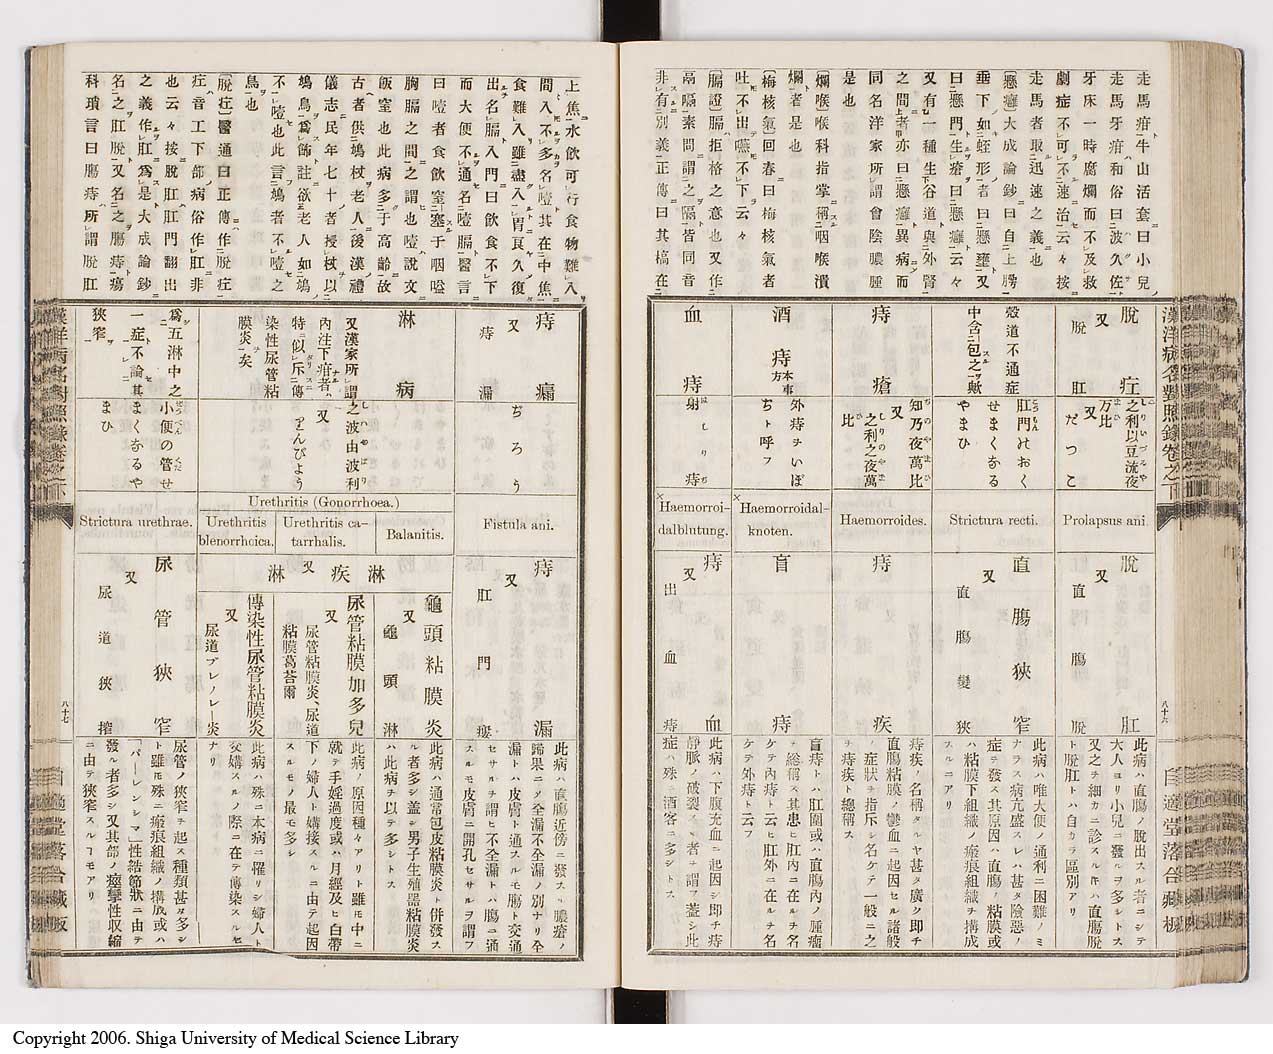 走馬疳牛山活套曰小兒
走馬牙疳和俗曰波久佐
牙床一時腐爛而不及救
劇症不可不速治云々按
走馬者取迅速之義也
懸癰大成論鈔曰自上腭
垂下如蛭形者曰懸壅又
曰懸門生瘡曰懸癰云々
又有一種生下谷道與外腎
之間者亦曰懸癰異病而
同名洋家所謂會陰膿腫
是也
爛喉喉科指掌稱咽喉潰
爛者是也
梅核氣回春曰梅核氣者
吐不出嚥不下云々
膈證膈拒格之意也又作
鬲嗝素問謂之隔皆同音
非有別義正傳曰其槁在
脫疘
又
脫肛
之利以豆流夜万比
又
だつこ
Prolapsus ani
脫肛
又
直腸脫
此病ハ直腸ノ脫出スル者ニシテ
大人ヨリ小兒ニ發ルヲ多シトス
又之ヲ細カニ診スルキハ直腸脫
ト脫肛トハ自カラ區別アリ
穀道不通症
中含包之歟
肛門のおく
せまくなる
やまひ
Strictura recti.
直膓狹窄
又
直膓變狹
此病ハ唯大便ノ通利ニ困難ノミ
ナラス病亢盛スレハ甚タ險惡ノ
症ヲ發ス其原因ハ直膓ノ粘膜或
ハ粘膜下組織ノ瘢痕組織ヲ搆成
スルニアリ
痔瘡
知乃夜萬比
又
之利之夜萬比
Haemorroides.
痔疾
痔疾ノ名稱タルヤ甚タ廣ク即チ
直膓粘膜ノ鬱血ニ起因セル諸般
ノ症狀ヲ指斥シ名シテ一般ニ之
ヲ痔疾ト總稱ス
酒痔本事方
外痔ヲいぼ
ぢト呼フ
Haemorroidal-
knoten.
盲痔
盲痔トハ肛圍或ハ直膓內ノ腫瘤
ヲ總稱ス其患ヒ肛內ニ在ルヲ名
ケテ內痔ト云ヒ肛外ニ在ルヲ名
ケテ外痔ト云フ
血痔
射しり痔
Haemorroi-
dalblutung.
痔血
又
出血痔
此病ハ下腹充血ニ起因シ即チ痔
靜脈ノ破裂スル者ヲ謂フ蓋シ此
症ハ殊ニ酒客ニ多シトス
漢洋病名對照錄卷之下
八十六
自適堂落合藏板
上焦水飲可行食物難入
間入不多名噎其在中焦
食難入雖盡入胃良久復
出名膈入門曰飲食不下
而大便不通名噎膈醫言
曰噎者食飲窒塞于咽嗌
胸膈之間之謂也噎說文
飯窒也此病多于高齡故
古者供鳩杖老人後漢禮
儀志民年七十者授杖以
鳩鳥爲飾註欲老人如鳩
不噎也此言鳩者不噎之
鳥也
脫疘醫通曰正傳作脫疘
疘音工下部病俗作肛非
也云々按脫肛肛門翻出
之義作肛爲是大成論鈔
名之肛脫又名之膓痔瘍
科瑣言曰膓痔所謂脫肛
痔瘺
又
痔漏
ぢろう
Fistula ani.
痔漏
又
肛門瘻
此病ハ直膓近傍ニ發スル膿瘡ノ
歸果ニメ全漏不全漏ノ別ナリ全
漏トハ皮膚ト通スルモ膓ト交通
セサルヲ謂ヒ不全漏トハ膓ニ通
スルモ皮膚ニ開孔セサルヲ謂フ
淋病
又漢家所謂
內注下疳者
特似斥傳
染性尿管粘
膜炎矣
之波由波利
又
りんびよう
Urethritis (Gonorrhoea.)
Balanitis.
Urethritis ca-
tarrhalis.
Urethritis
blenorrhoica.
淋疾
又
淋
龜頭粘膜炎
又
龜頭淋
此病ハ通常包皮粘膜炎ト併發ス
ル者多シ蓋シ男子生殖器粘膜炎
ハ此病ヲ以テ多シトス
尿管粘膜加多兒
又
尿管粘膜炎、尿道
粘膜葛荅爾
此病ノ原因種々アリト雖モ中ニ
就テ手婬過度或ハ月經及ヒ白帶
下ノ婦人ト媾接スルニ由テ起因
スルモノ最モ多シ
傳染性尿管粘膜炎
又
尿道ブレノレー炎
此病ハ殊ニ本病ニ罹リシ婦人ト
交媾スルノ際ニ在テ傳染スルモノ
ナリ
爲五淋中之
一症不論其
狹窄
小便の管せ
まくなるや
まひ
Strictura urethrae.
尿管狹窄
又
尿道狹搾
尿管ノ狹窄ヲ起ス種類甚タ多シ
ト雖モ殊ニ瘢痕組織ノ搆成或ハ
「パーレンシマ」性結節狀ニ由テ
發ル者多シ又其部ノ痙攣性収縮
ニ由テ狹窄スルヿモアリ
八十七
自適堂落合藏板
Copyright 2006. Shiga University of Medical Science Library